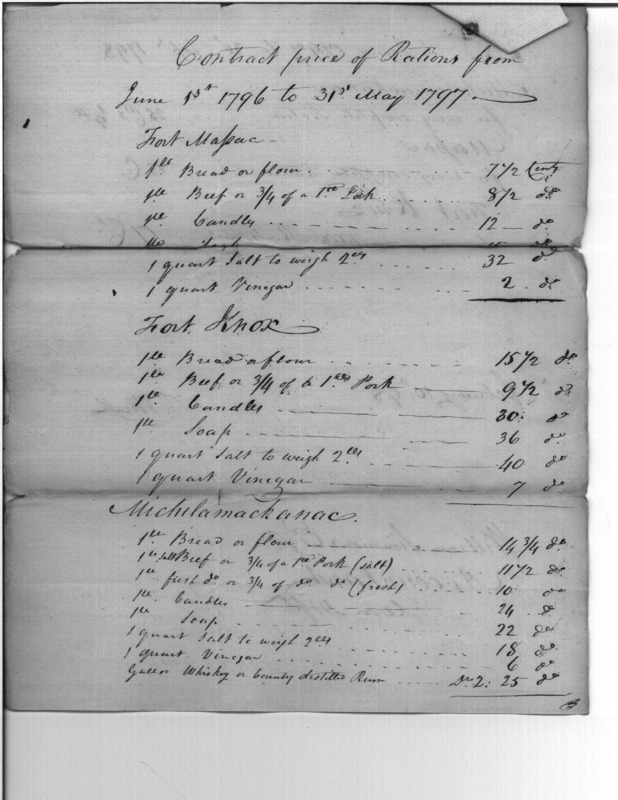 Contract price of Rations from
June 1st 1796 to 31st May 1797
Fort Massac
1 lb Bread or flour 7 1/2 Cents
1 lb Beef or 3/4 of a 1 lb Pork 8 1/2 do
1 lb Candles 12 do
1 lb Soap do
1 quart Salt to weigh 2 lbs 32 do
1 quart Vinegar 2 do
Fort Knox
1 lb Bread or flour 15 1/2 do
1 lb Beef or 3/4 of 1 lb Pork 9 1/2 do
1 lb Candles 30 do
1 lb Soap 36 do
1 quart Salt to weigh 2 lbs 40 do
1 quart Vinegar 7 do
Michilamackanac.
1 lb Bread or flour 14 3/4 do
1 lb salt Beef or 3/4 of a 1 lb Pork (salt) 11 1/2 do
1 lb fresh do or 3/4 of do do (fresh) 10 do
1 lb Candles 24 do
1 lb Soap 22 do
1 quart Salt to weigh 2 lbs 18 do
1 quart Vinegar 6 do
Gallon Whiskey or Country distilled Rum Drs 2: 25 do